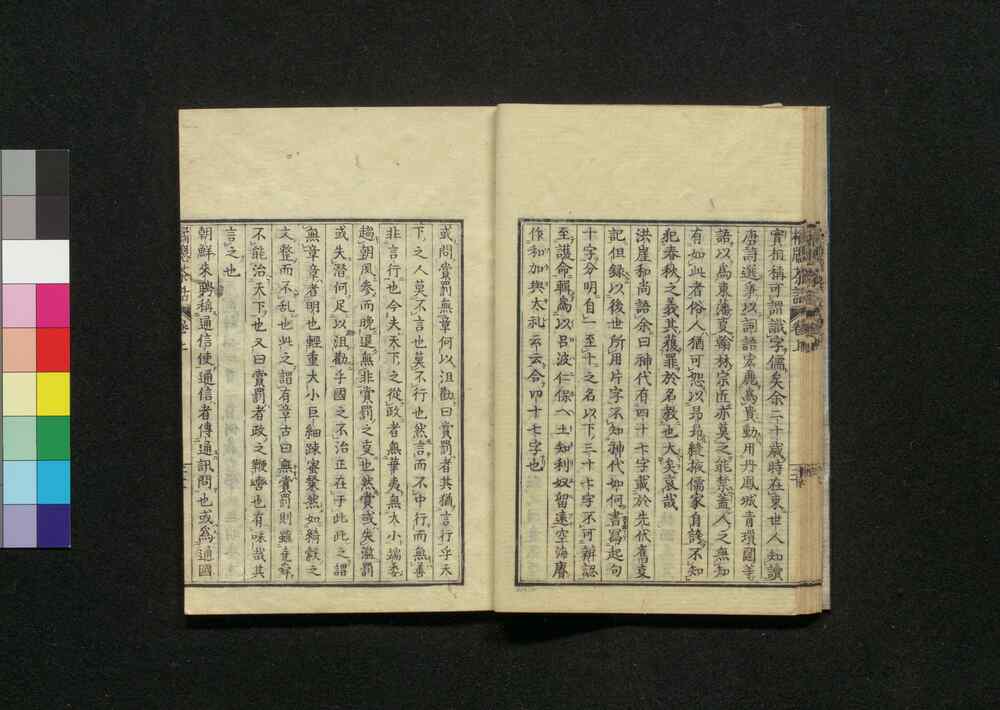 實相稱可謂識字儒矣余二十歲時在東世人知讀
唐詩選爭以詞語宏麗爲貴動用丹鳳城青瑣圖等
語以爲東藩夏翰林宗匠亦莫之能禁蓋人之無知
有如此者俗人猶可恕以昂昂縫掖儒家自誇不知
犯春秋之義其獲罪於名教也大矣哀哉
洪崖和尚語余曰神代有四十七字載於先代舊事
記但録以後世所用片字不知神代如何書寫起句
十字分明自一至十之名以下三十七字不可辨認
至護命輒爲以呂波仁保へ土知利奴留遠空海賡
作和加與太礼云云合四十七字也
或問賞罰無章何以沮勸曰賞罰者其猶言行乎天
下之人莫不言也莫不行也然言而不中行而無善
非言行也今夫天下之從政者無華夷無大小端委
趨朝夙參而晚退無非賞罰之事也然賞或失濫罰
或失潛何足以沮勸乎國之不治正在于此此之謂
無章章者明也輕重大小巨細踈密粲然如綺縠之
文整而不乱也此之謂有章古曰無賞罰則雖堯舜
不能治天下也又曰賞罰者政之鞭轡也有味哉其
言之也
朝鮮來聘稱通信使通信者傳通訊問也或爲通國